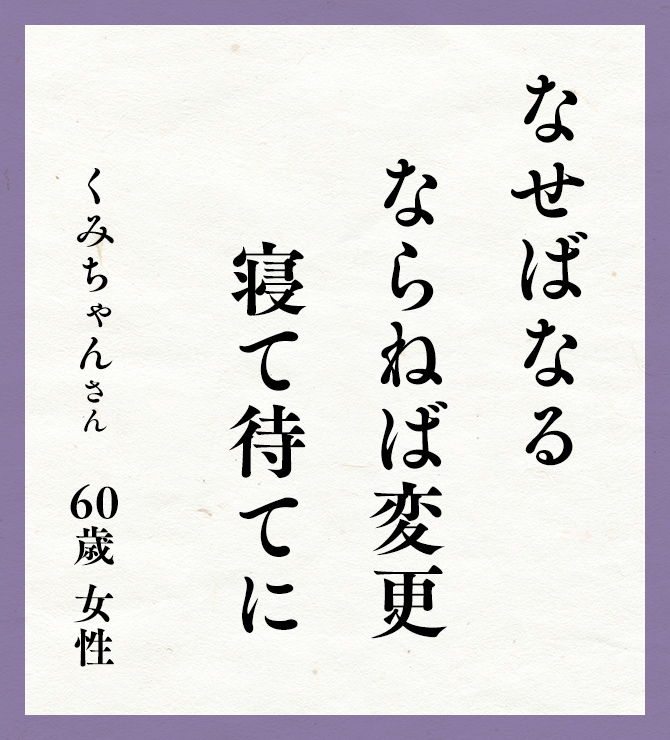 なせばなる
ならねば変更
寝て待てに
くみちゃんさん 60歳 女性